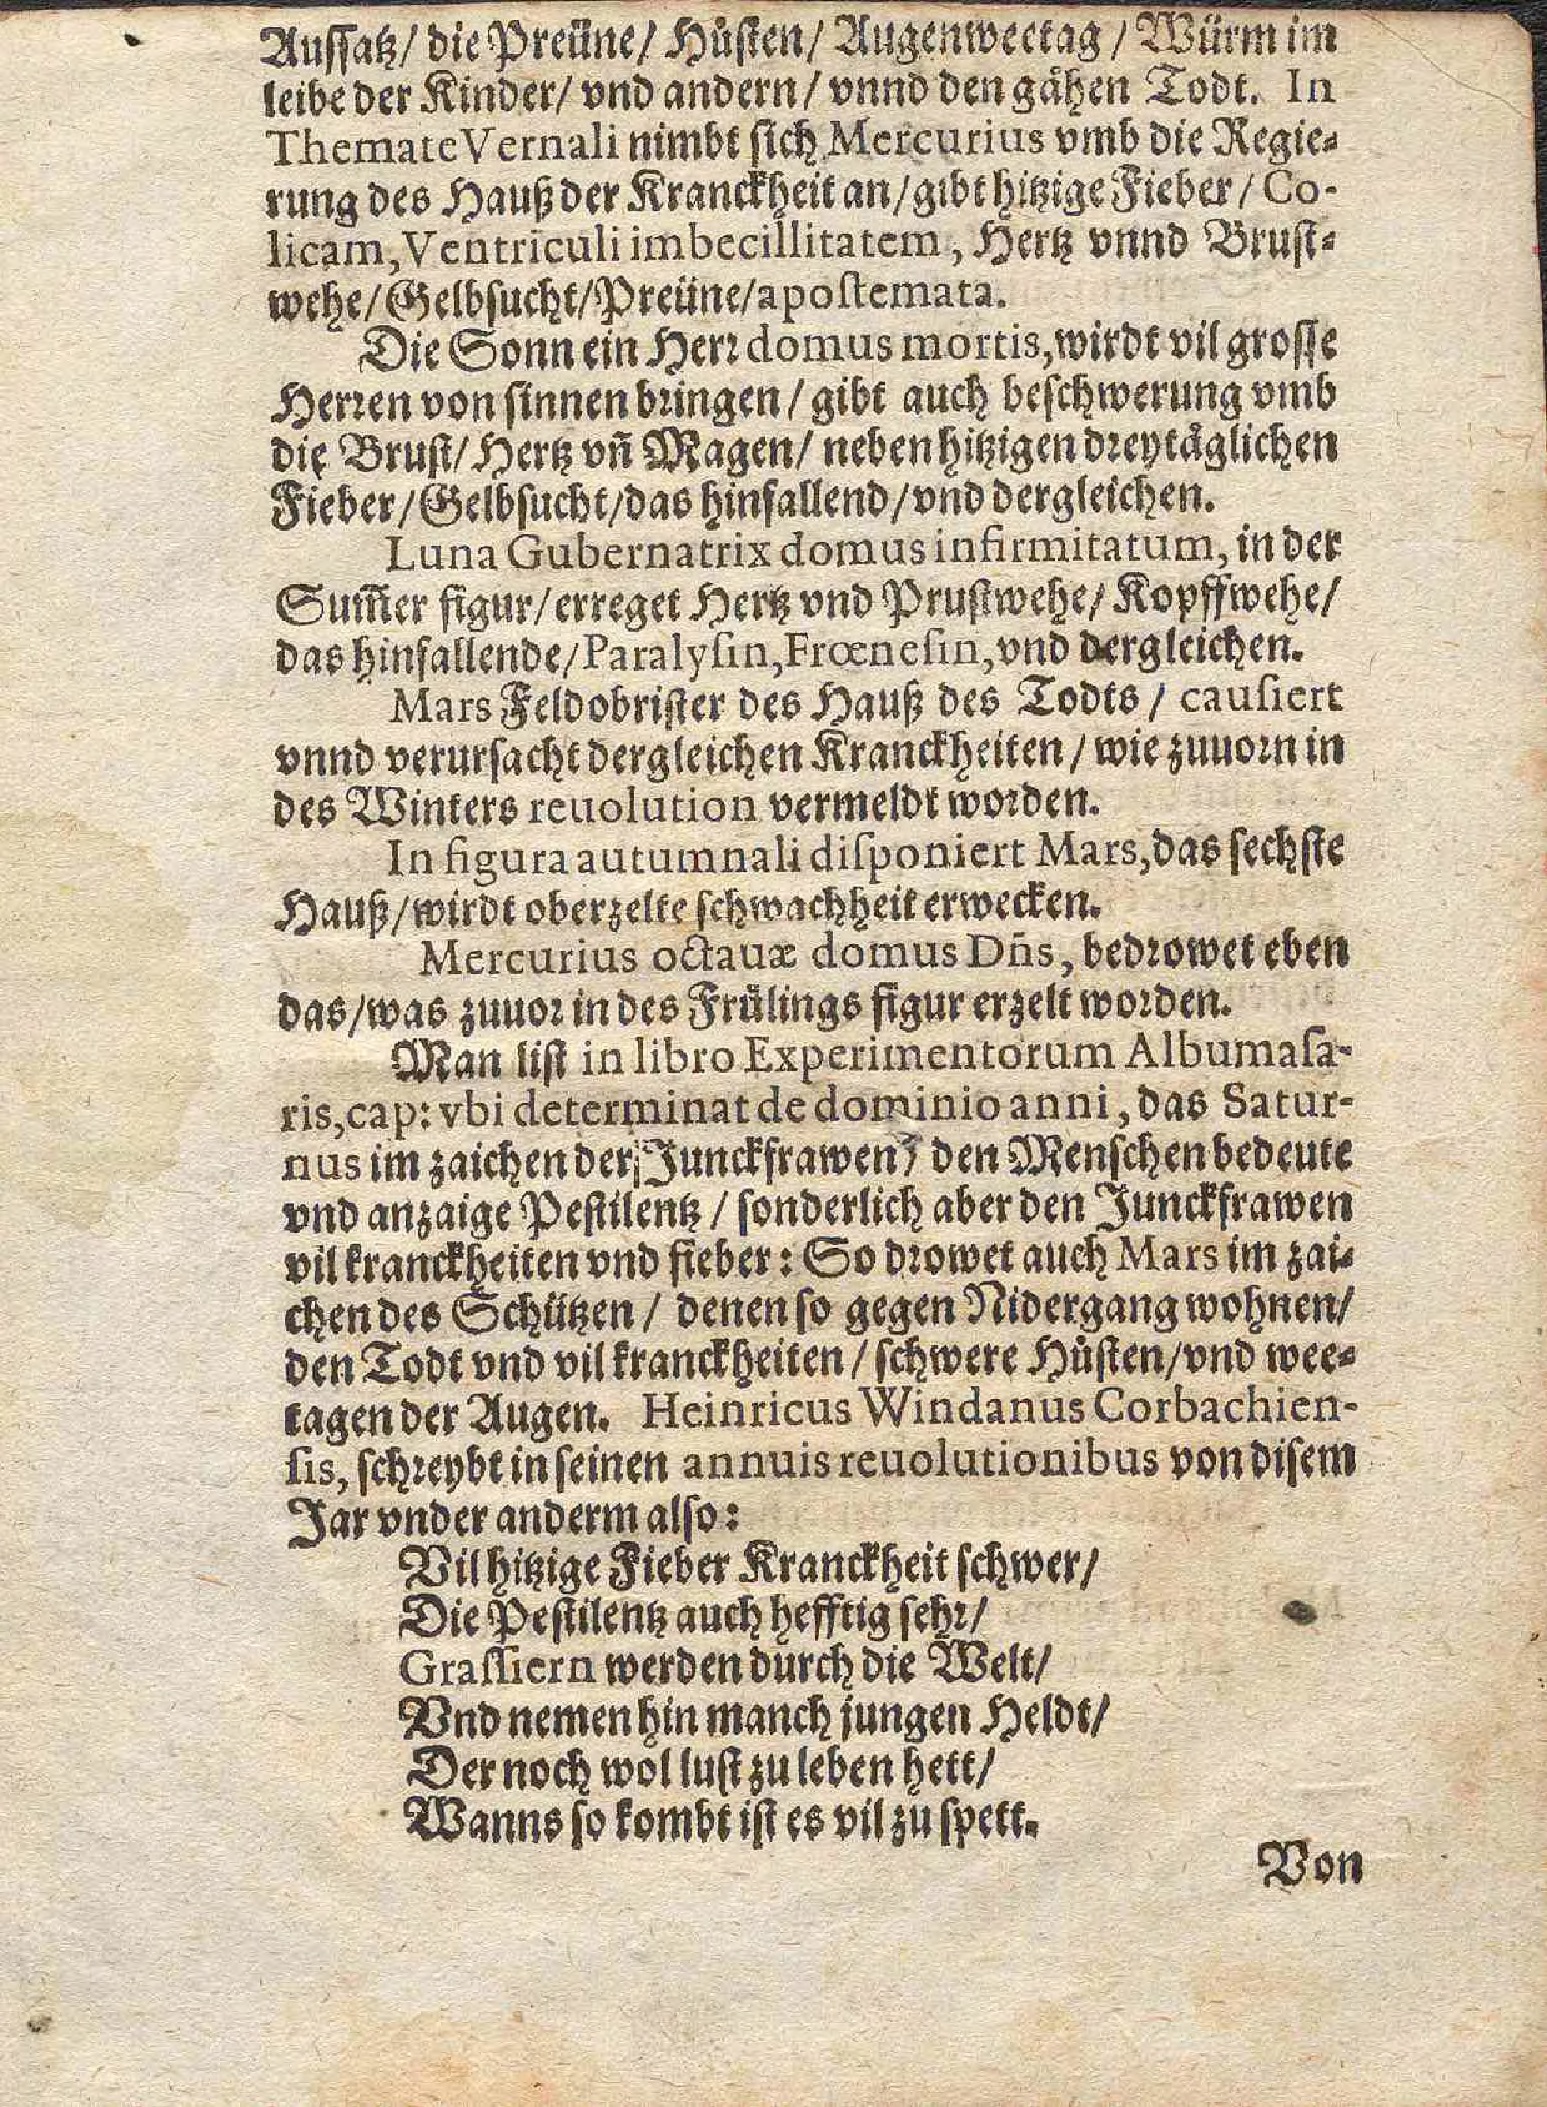 Auſſatz/ die Preüne/ Hůſten/ Augenweetag/ Würm im
leibe der Kinder/ vnd andern/ vnnd den gåhen Todt. In
Themate Vernali nimbt ſich Mercurius vmb die Regie⸗
rung des Hauß der Kranckheit an/ gibt hitzige Fieber/ Co-
licam, Ventriculi imbecillitatem, Hertz vnnd Bruſt⸗
wehe/ Gelbſucht/ Preüne/ apoſtemata.
Die Sonn ein Herꝛ domus mortis, wirdt vil groſſe
Herꝛen von ſinnen bꝛingen/ gibt auch beſchwerung vmb
die Bruſt/ Hertz vñ Magen/ neben hitzigen dꝛeytåglichen
Fieber/ Gelbſucht/ das hinfallend/ vnd dergleichen.
Luna Gubernatrix domus infirmitatum, in der
Sum̃er figur/ erreget Hertz vnd Pruſtwehe/ Kopffwehe/
das hinfallende/ Paralyſin, Frœneſin, vnd dergleichen.
Mars Feldobriſter des Hauß des Todts/ cauſiert
vnnd verurſacht dergleichen Kranckheiten/ wie zuuoꝛn in
des Winters reuolution vermeldt woꝛden.
In figura autumnali diſponiert Mars, das ſechſte
Hauß/ wirdt oberzelte ſchwachheit erwecken.
Mercurius octauæ domus Dñs, bedꝛowet eben
das/ was zuuoꝛ in des Frůlings figur erzelt woꝛden.
Man liſt in libro Experimentorum Albumaſa-
ris, cap: vbi determinat de dominio anni, das Satur-
nus im zaichen der Junckfrawen/ den Menſchen bedeute
vnd anzaige Peſtilentz/ ſonderlich aber den Junckfrawen
vil kranckheiten vnd fieber: So dꝛowet auch Mars im zai⸗
chen des Schützen/ denen ſo gegen Nidergang wohnen/
den Todt vnd vil kranckheiten/ ſchwere Hůſten/ vnd wee⸗
tagen der Augen. Heinricus Windanus Corbachien-
ſis, ſchꝛeybt in ſeinen annuis reuolutionibus von diſem
Jar vnder anderm alſo:
Vil hitzige Fieber Kranckheit ſchwer/
Die Peſtilentz auch hefftig ſehꝛ/
Graſſiern werden durch die Welt/
Vnd nemen hin manch jungen Heldt/
Der noch wol luſt zu leben hett/
Wanns ſo kombt iſt es vil zu ſpett.
Von